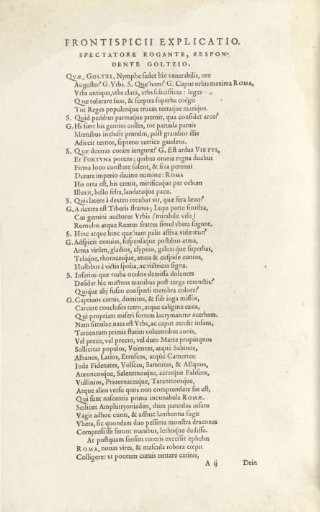 FRONTISPICII EXPLICATIO,
SPECTATORE ROGANTE, RESPON-
DENTE GOLTZIO.
QVÆ, GOLTZI, Nympha sedet hîc venerabilis, ore
Augusto? G. Vrbs. S. Quænam? G. Caput orbis maxima ROMA,
Vrbs antiqua, vrbs clara, vrbs felicissima: leges
Quæ tolerare suas, & sceptra superba coegit
Tot Reges populosque truces totamque
S. Quid pedibus parmaque premit, quæ considet arce?
G. Hi sunt bis gemini colles, tot parcula paruis
Montibus inclusit primùm, pòst grandior illis
Adiecit ternos, septeno vertice gaudens.
S. Quæ dextras coràm iungunt? G. Est ardua VIRTVS,
Et FORTVNA potens; quibus omnia regna duabus
Firma loco constare solent, & fixa perenni
Durare imperio: diuino numine: ROMA
His orta est, his creuit, mirificosque per orbem
Eluxit, bello felix, laudataque pace.
S. Qui latere à dextro recubat vir, quæ fera
G. A dextra est Tiberis fluuius, Lupa parte sinistra,
Cui gemini auctores Vrbis (mirabile visu)
Romulus atque Remus fratres simul vbera sugunt.
S. Hinc atque hinc quænam palis affixa
G. Adspicis exuuias, suspensaque postibus arma,
Arma virûm, gladios, clypeos, galeasque superbas,
Telaque, thoracesque, erata & cuspide contos,
Hostibus à victis spolia, ac victricia signa.
S. Inferius quæ turba oculos demissa dolentes
Desidet hîc mœstens manibus post terga reuinctis?
Quique alij fusco conspersi membra colore?
G. Captiuos cernis, domitos, & sub iuga missos,
Carcere conclusos tetro, atque caligine cæca,
Qui propriam miseri sortem lacrymantur acerbam.
Nam simulac nata est Vrbs, ac caput extulit
Tercentum primis statim voluentibus annis,
Vel prece, vel precio, vel duro Marte propinquos
Sollicitat populos, Veientes, atque Sabinos,
Albanos, Latios, Etruscos, atque Camertes:
Inde Fidenates, Volscos, Samnitas, & Æquos,
Auruncosque, Salentinosque, acresque Faliscos,
Vulsinios, Priuernatesque, Tarentinosque,
Atque alios versu quos non comprendere fas est,
Qui sunt nascentis prima incunabula ROMÆ.
Scilicet Amphitryoniaden, dum paruulus infans
Vagit adhuc cunis, & adhuc lambentia sugit
Vbera, sic quondam duo pessima monstra dracones
Compressisse ferunt manibus, lethoque dedisse.
At postquam sensim teneris excessit ephebis
ROMA, nouas vires, & mascula robora cœpit
Colligere: vt pontum curuis tentare carinis,
A ij Dein